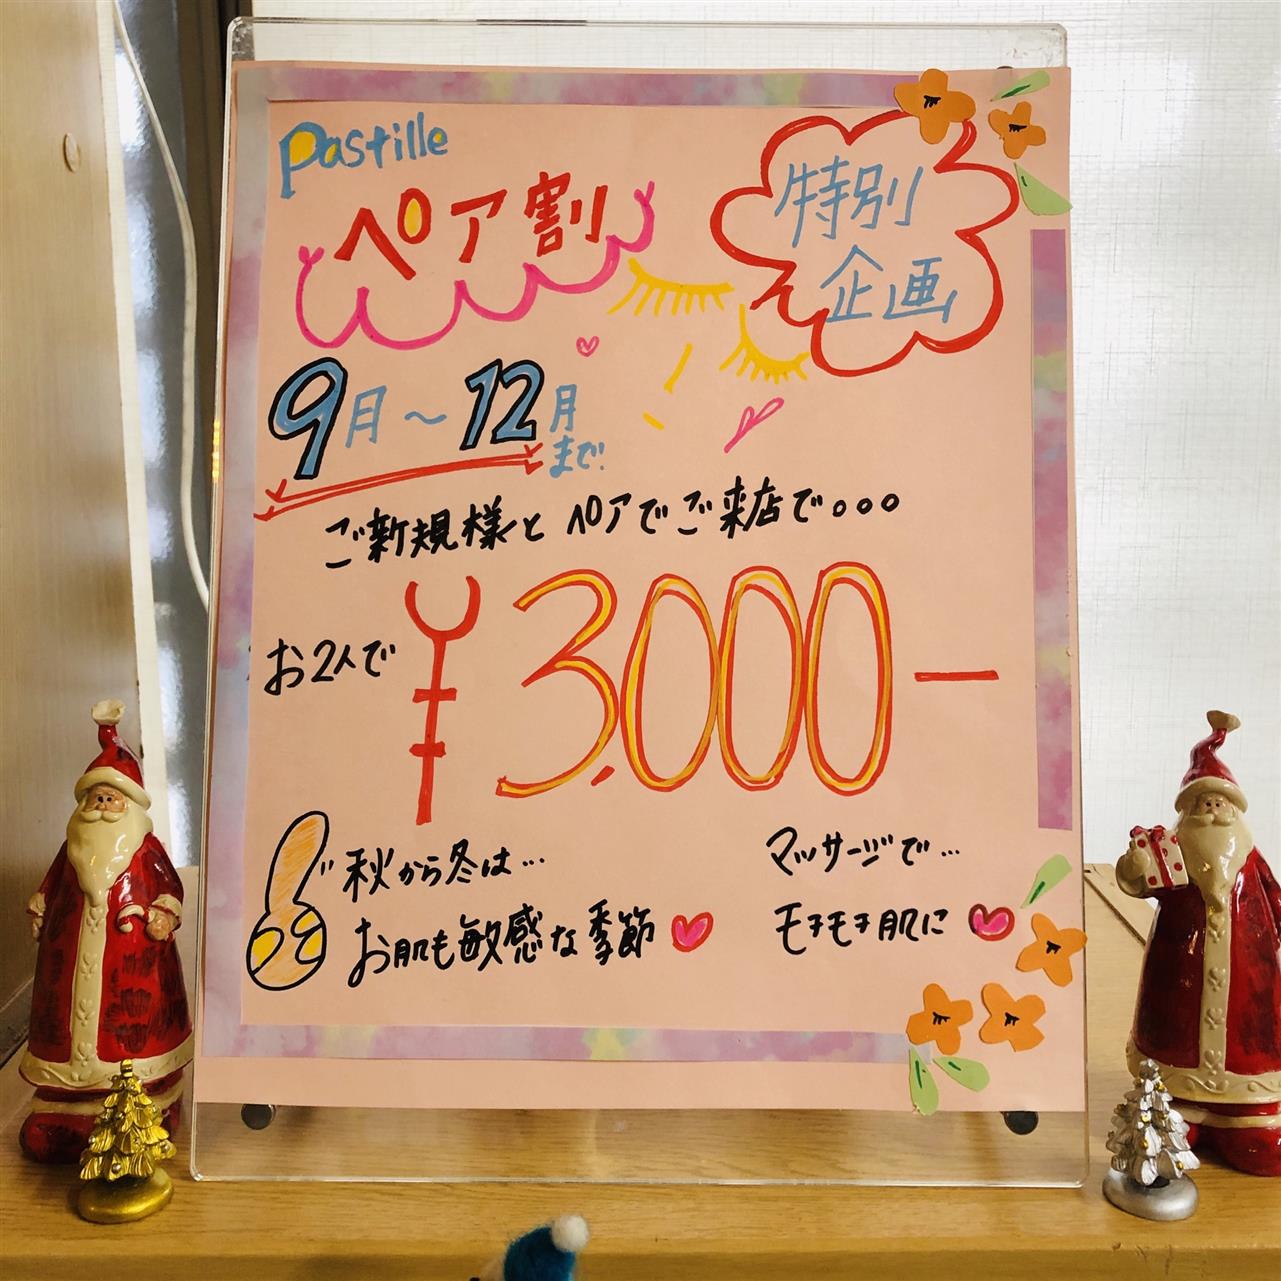 Pastille
ペア割
特別
企画
9月〜12月
まで
ご新規様とペアでご来店で。。。
お2人で ¥3,000-
秋から冬は…
お肌も敏感な季節
マッサージで…
モチモチ肌に